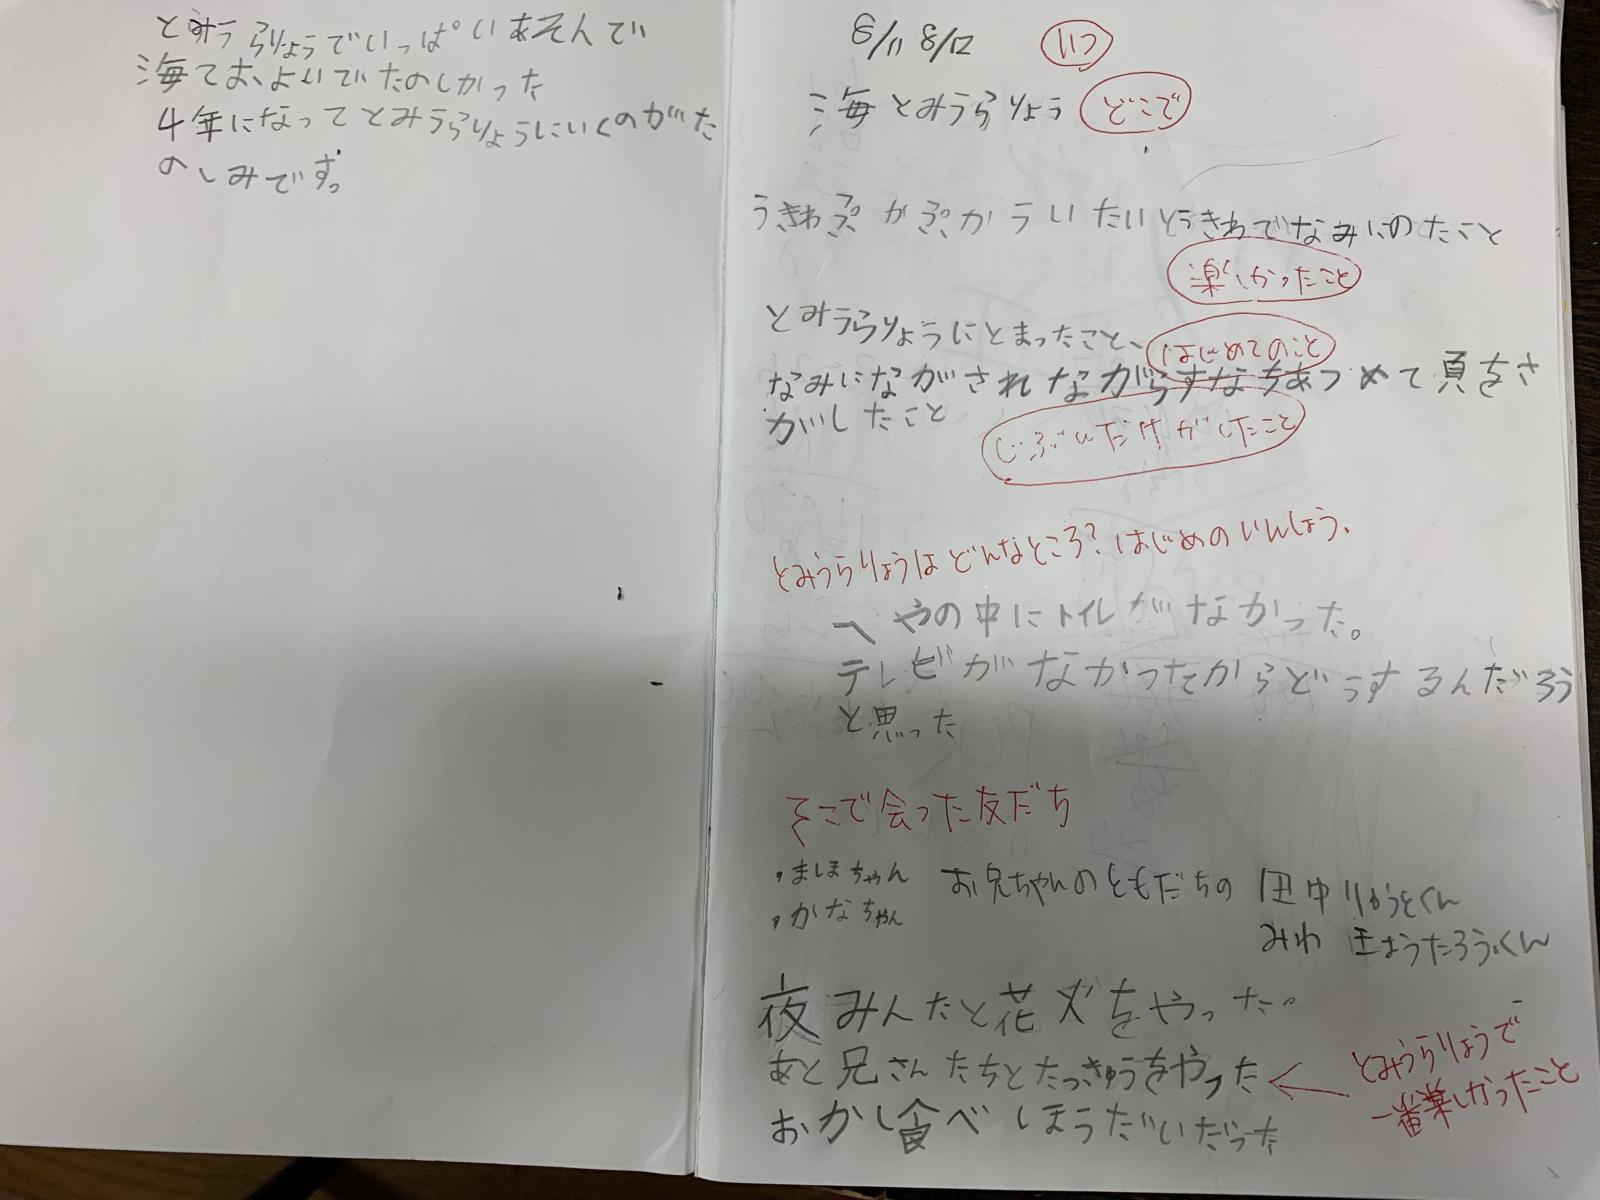 とみうらりょうでいっぱいあそんで
海ておよいでたのしかった
4年になってとみうらりょうにいくのがた
のしみです。
8/11 8/12 いつ
海とみうらりょう どこで
うきわぷかぷかういたいとうきわでなみにのたこと
楽しかったこと
とみうらりょうにとまったこと、
はじめてのこと
なみにながされながらすなをあつめて貝をさ
がしたこと
じぶんだけがしたこと
とみうらりょうはどんなところ?はじめのいんしょう.
へやの中にトイレがなかった。
テレビがなかったからどうするんだろう
と思った
そこで会った友だち
・ましほちゃん お兄ちゃんのともだちの 田中りゅうとくん
・かなちゃん みわ きょうたろうくん
夜みんなと花火をやった。
あと兄さんたちとたっきゅうをやった ← とみうらりょうで
一番楽しかったこと
おかし食べほうだいだった